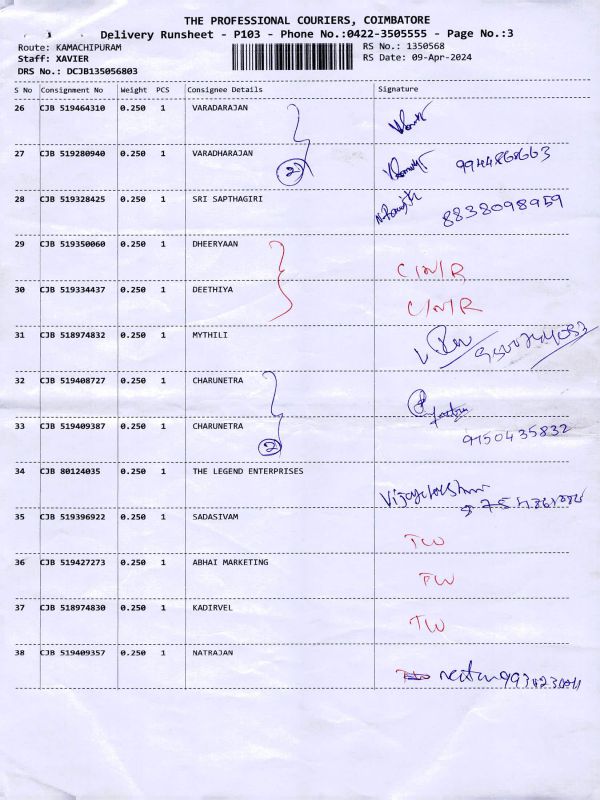 THE PROFESSIONAL COURIERS, COIMBATORE
Delivery Runsheet - P103 - Phone No.:0422-3505555 - Page No.:3
Route: KAMACHIPURAM RS No.: 1350568
Staff: XAVIER RS Date: 09-Apr-2024
DRS No.: DCJB135056803
S No Consignment No Weight PCS Consignee Details Signature
26 CJB 519464310 0.250 1 VARADARAJAN
27 CJB 519280940 0.250 1 VARADHARAJAN
2
28 CJB 519328425 0.250 1 SRI SAPTHAGIRI 8838098959
29 CJB 519350060 0.250 1 DHEERYAAN C/N/R
30 CJB 519334437 0.250 1 DEETHIYA C/N/R
31 CJB 518974832 0.250 1 MYTHILI
32 CJB 519408727 0.250 1 CHARUNETRA
33 CJB 519409387 0.250 1 CHARUNETRA 9150435832
2
34 CJB 80124035 0.250 1 THE LEGEND ENTERPRISES
35 CJB 519396922 0.250 1 SADASIVAM TW
36 CJB 519427273 0.250 1 ABHAI MARKETING TW
37 CJB 518974830 0.250 1 KADIRVEL TW
38 CJB 519409357 0.250 1 NATRAJAN